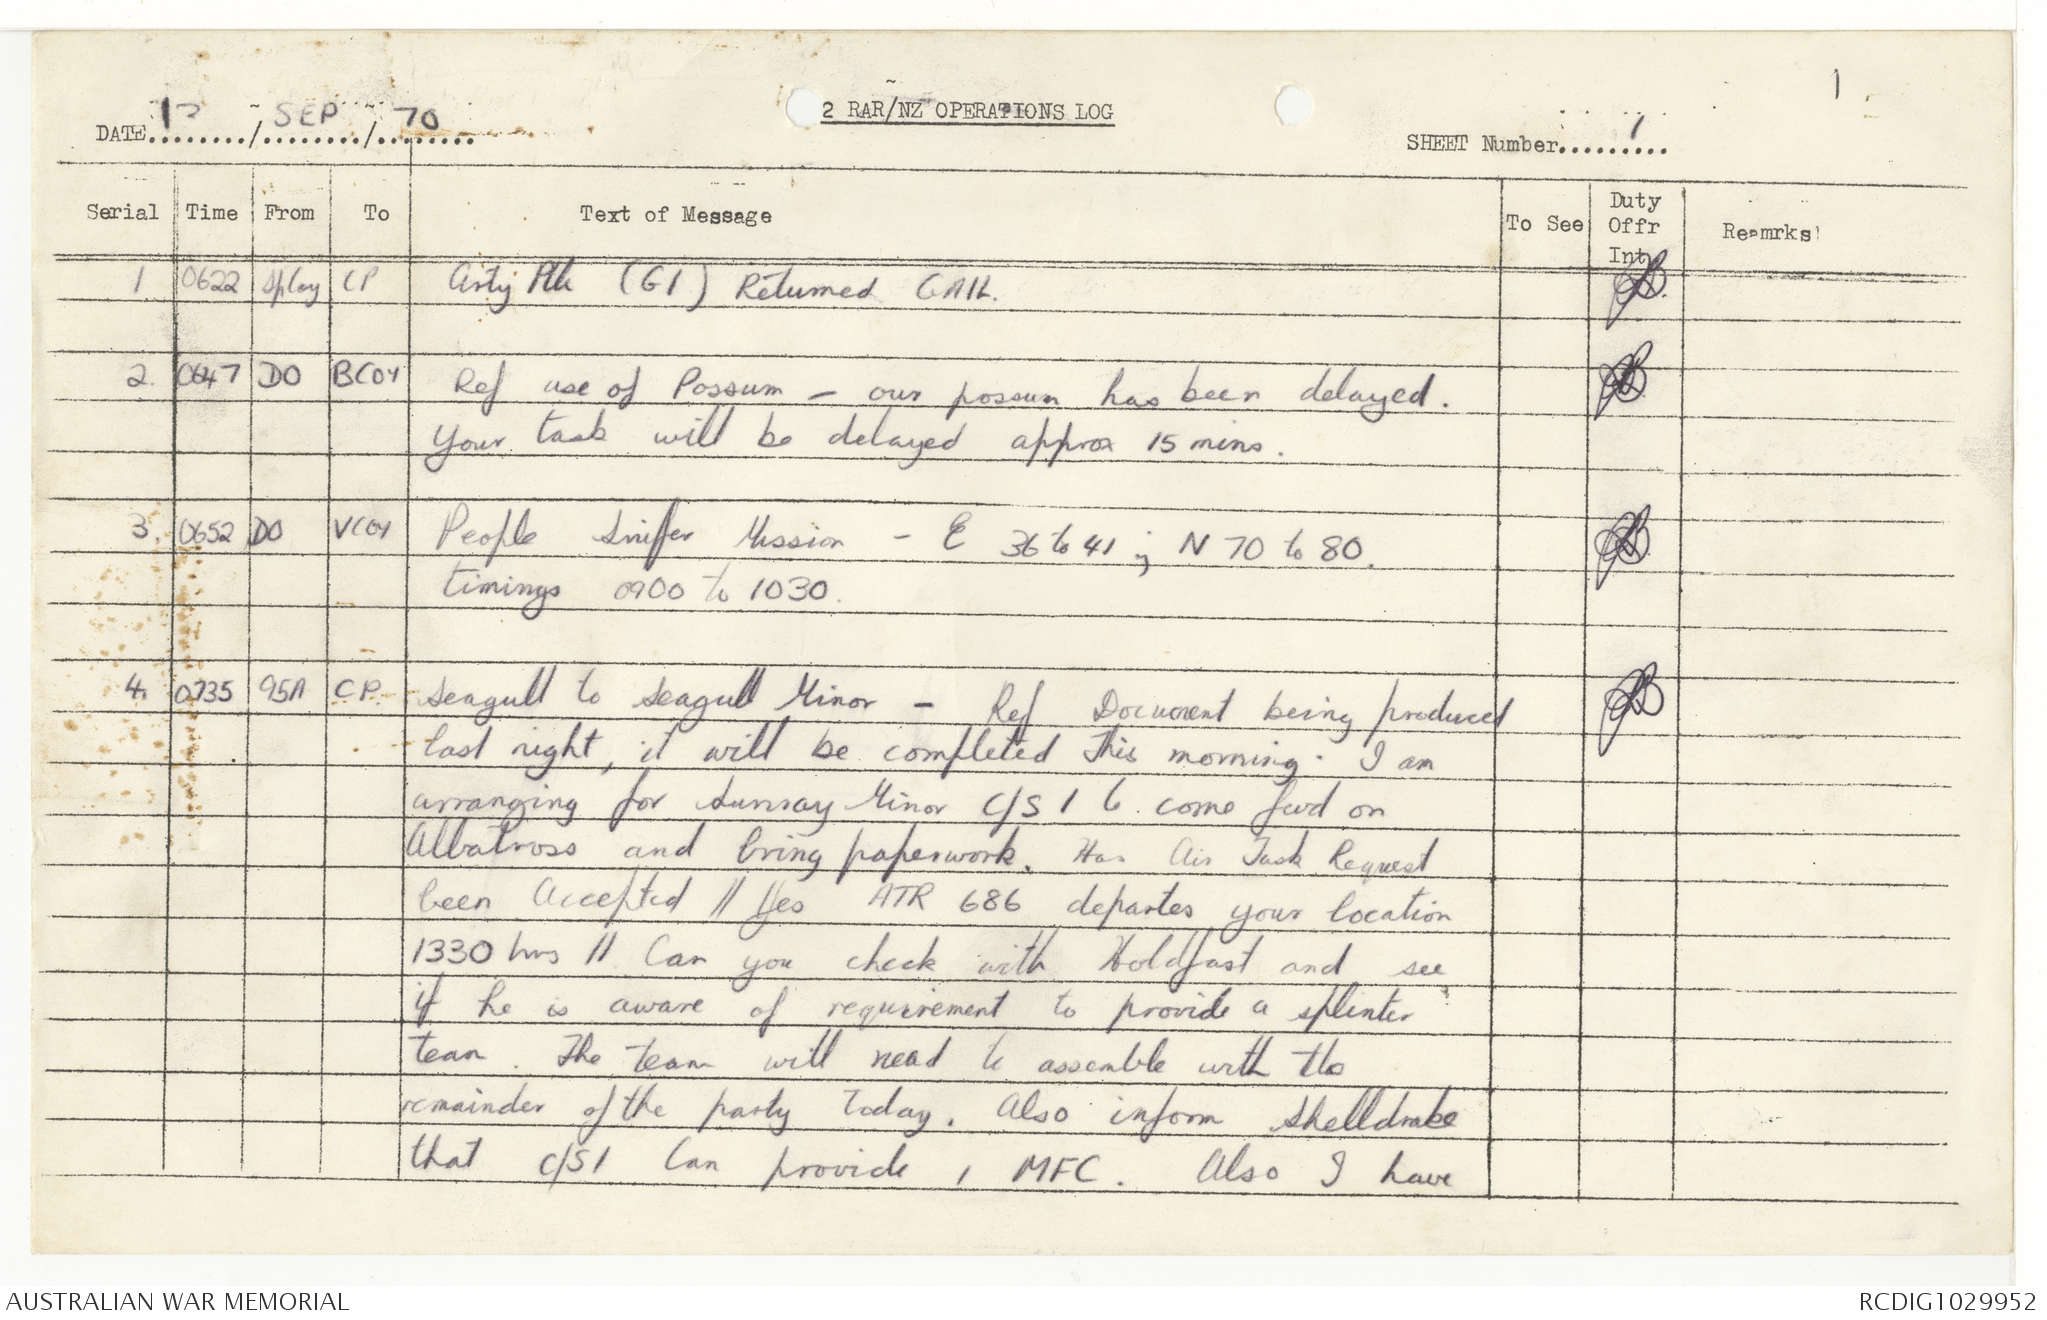 1
2 RAR/NZ OPERATIONS LOG
DATE 1 / SEP / 70
SHEET Number 1
Serial Time From To Text of Message To See Duty Offr Int Remrks
1 0622 CP Arty Ptl (G1) Returned GAIL.
2. 0647 DO BCOY Ref use of Possum – our possum has been delayed.
Your task will be delayed approx 15 mins.
3. 0652 DO VCOY People Sniffer Mission – E 36 to 41; N 70 to 80.
timings 0900 to 1030.
4. 0735 95A CP. Seagull to Seagull Minor – Ref Document being produced
last night, it will be completed this morning. I am
arranging for Sunray Minor C/S 1 to come fwd on
Albatross and bring paperwork. Has Air Task Request
been Accepted // Yes ATR 686 departes your location
1330 hrs // Can you check with Holdfast and see
if he is aware of requirement to provide a splinter
team. The team will need to assemble with the
remainder of the party Today. Also inform Shelldrake
that C/S 1 Can provide 1 MFC. Also I have
AUSTRALIAN WAR MEMORIAL
RCDIG1029952